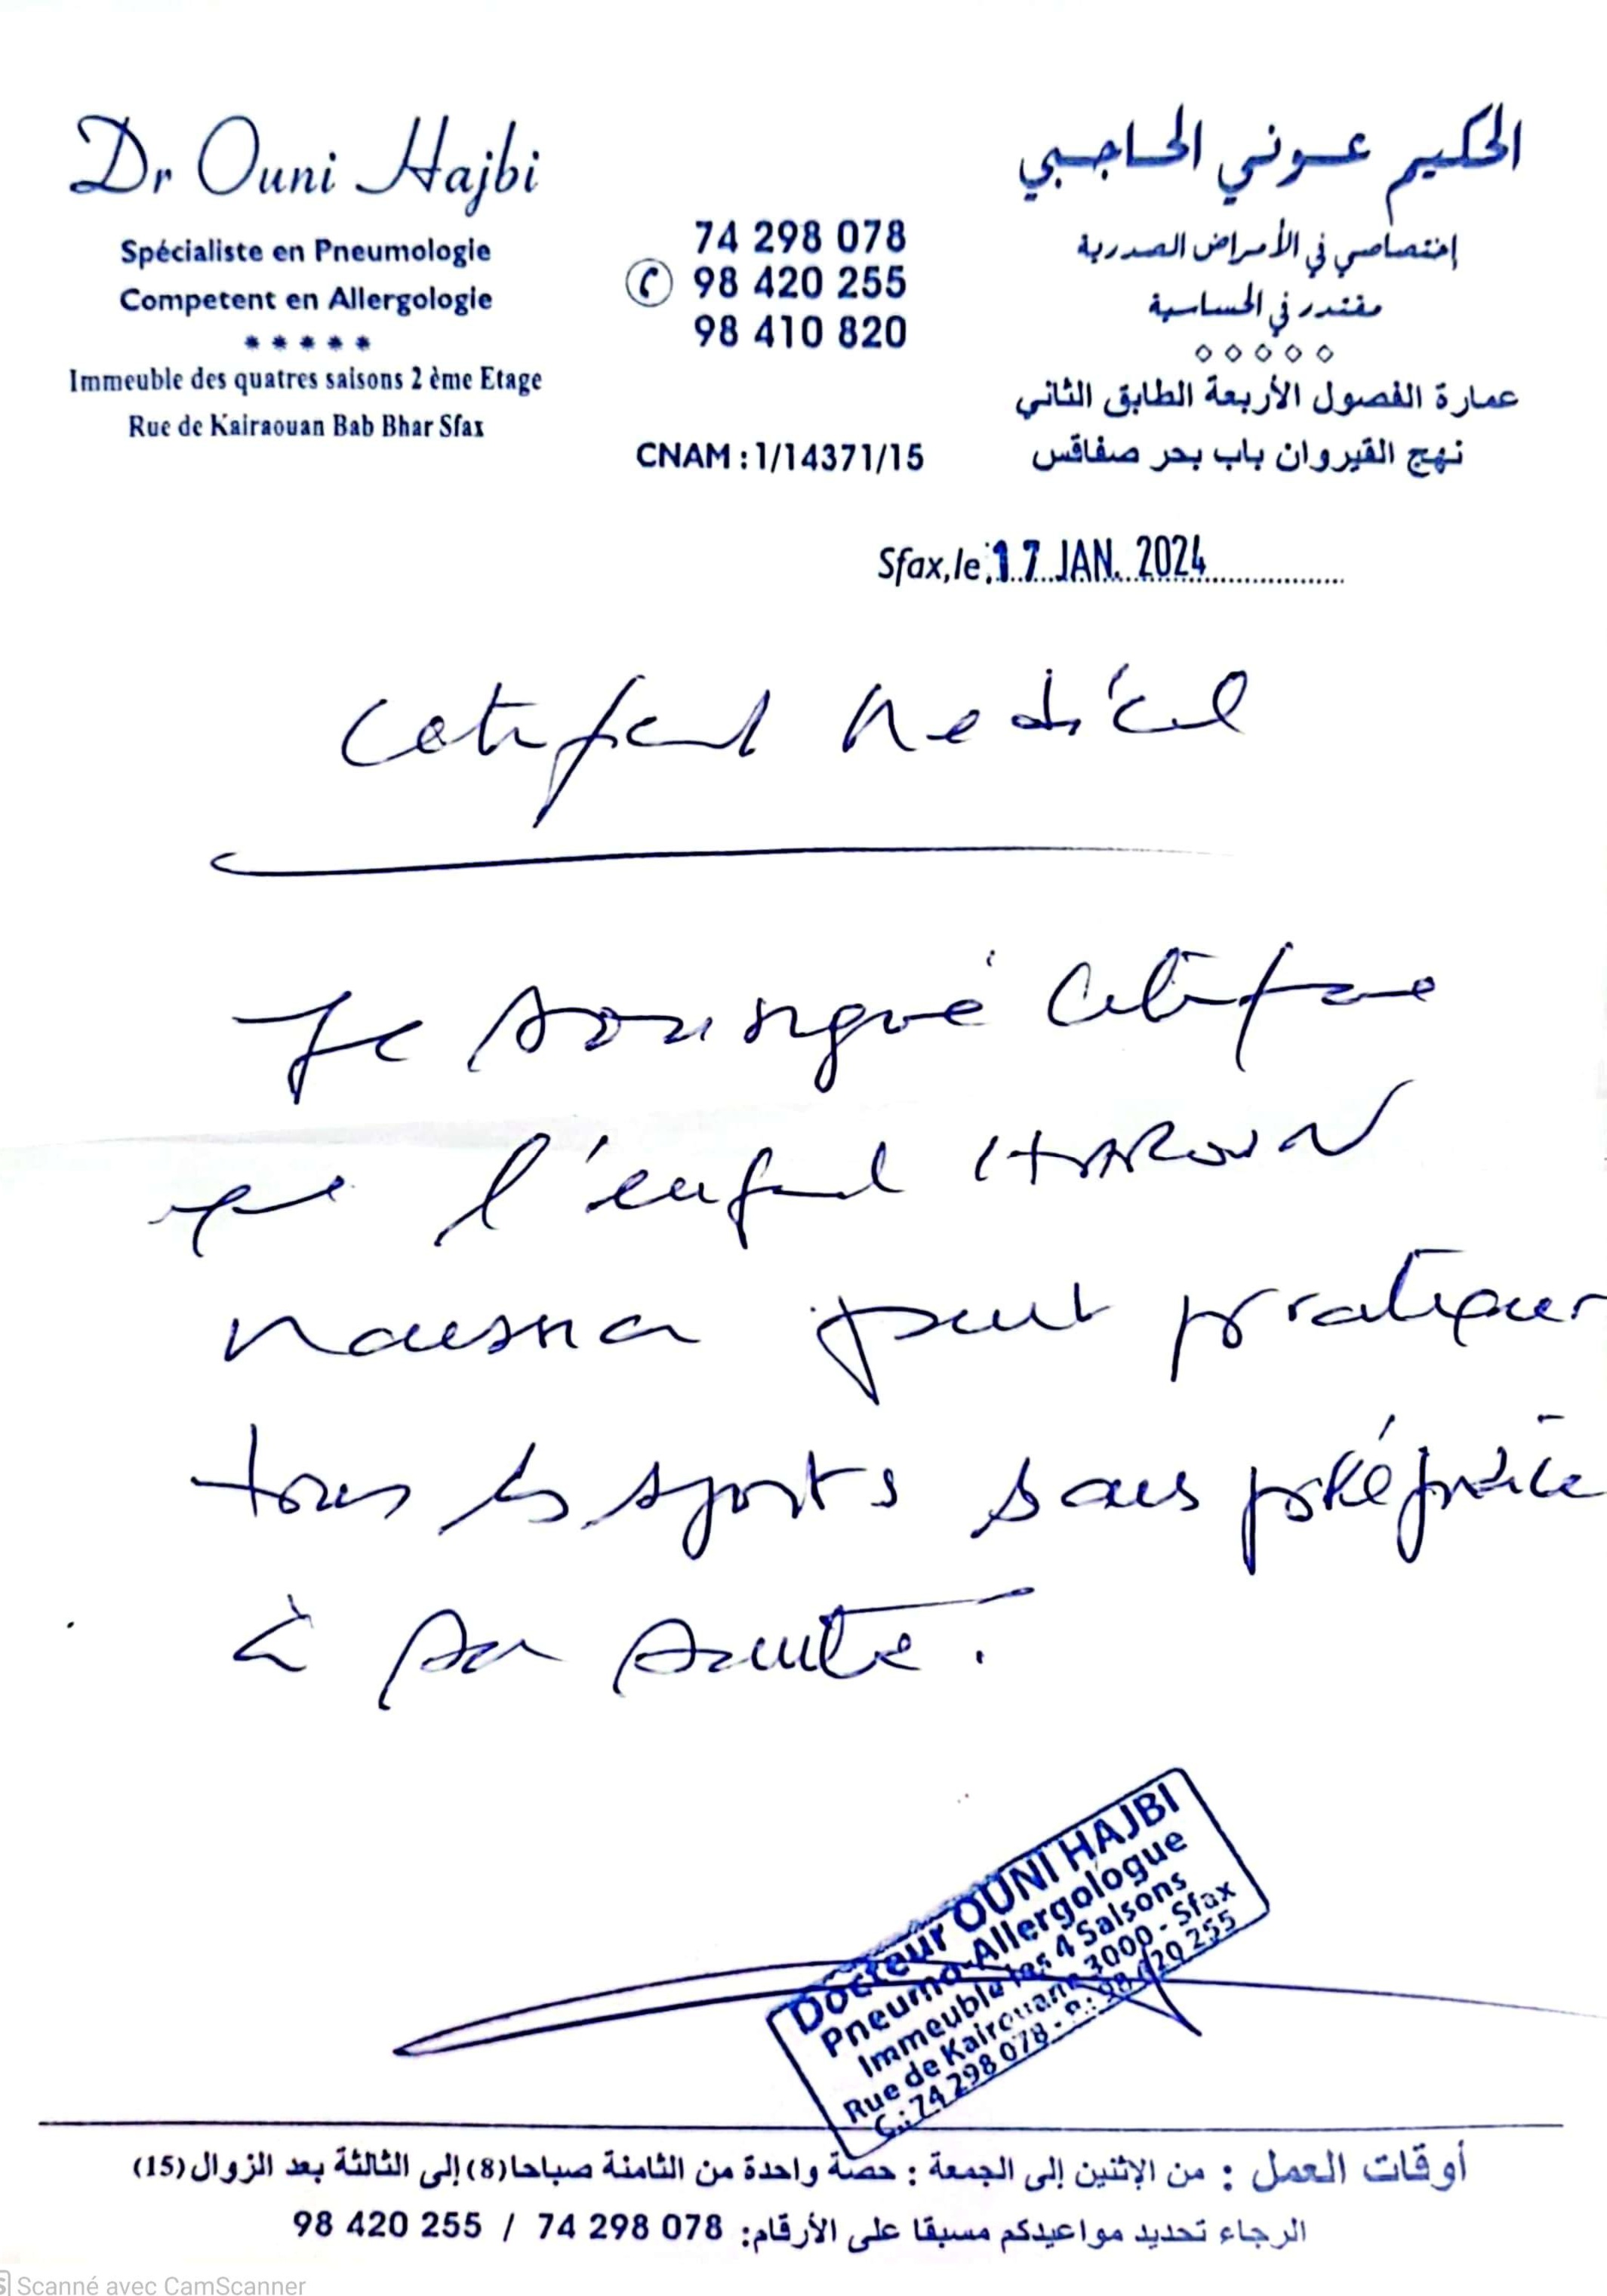 Dr Ouni Hajbi
Spécialiste en Pneumologie
Competent en Allergologie
*****
Immeuble des quatres saisons 2 ème Etage
Rue de Kairaouan Bab Bhar Sfax
74 298 078
98 420 255
98 410 820
CNAM : 1/14371/15
الحكيم عوني الحاجبي
إختصاصي في الأمراض الصدرية
مقتدر في الحساسية
عمارة الفصول الأربعة الطابق الثاني
نهج القيروان باب بحر صفاقس
Sfax, le 17 JAN. 2024
Certificat Medical
Je soussigné certifie
que l'enfant HAROUN
peut pratiquer
tous les sports sans préjudice
à sa santé.
Docteur OUNI HAJBI
Pneumo-Allergologue
Immeuble les 4 Saisons
Rue de Kairouane 3000 - Sfax
C.: 74 298 078 - P.: 98 420 255
أوقات العمل : من الإثنين إلى الجمعة : حصة واحدة من الثامنة صباحا (8) إلى الثالثة بعد الزوال (15)
الرجاء تحديد مواعيدكم مسبقا على الأرقام: 078 298 74 / 255 420 98
Scanné avec CamScanner